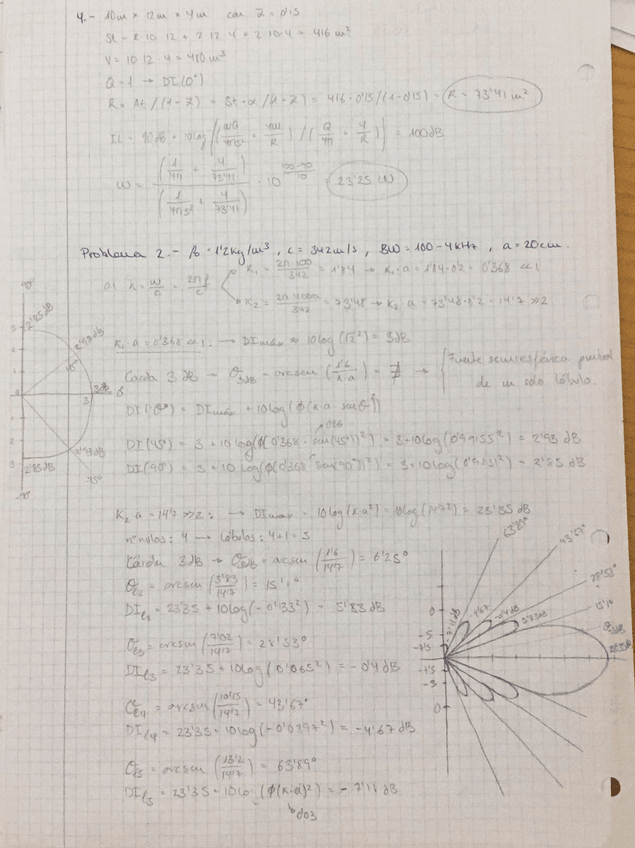 4.- 10m x 12m x 4m con α = 0'15
St = 2·10·12 + 2·12·4 + 2·10·4 = 416 m²
V = 10·12·4 = 480 m³
Q = 1 → DI(0°)
R = At/(1-α) = St·α/(1-α) = 416·0'15/(1-0'15) = R = 73'41 m²
= 100 dB
W = (1/4π + 4/73'41) / (1/4π5² + 4/73'41) · 10^((100-90)/10) 23'25 W
Problema 2.- ρ₀ = 1'2 kg/m³, c = 342 m/s, BW = 100 - 4 kHz, a = 20 cm.
a) K = w/c = 2πf/c
K₁ = 2π·100/342 = 1'84 → K₁·a = 1'84·0'2 = 0'368 << 1
K₂ = 2π·4000/342 = 73'48 → K₂·a = 73'48·0'2 = 14'7 >> 2
K₁·a = 0'368 << 1: → DImax = 10log(√2²) = 3dB
Caída 3 dB → θ3dB = arcsen(1'6/k·a) = ∄ → Fuente semiesférica puntual
de un solo lóbulo.
DI(θ°) = DImax + 10log(ϕ(k·a·senθ))
DI(45°) = 3 + 10log(ϕ(0'368·sen(45°))²) = 3+10log(0'9155²) = 2'93 dB
DI(90°) = 3 + 10log(ϕ(0'368·sen(90°))²) = 2'85 dB
K₂·a = 14'7 >> 2: → DImax = 10log(ka²) = 10log(14'7²) = 23'35 dB
nº nulos: 4 → lóbulos: 4+1 = 5
Caída 3dB → θ3dB = arcsen(1'6/14'7) = 6'25°
θl2 = arcsen(3'83/14'7) = 15'1°
DIl2 = 23'35 + 10log(-0'33²) = 5'83 dB
θl3 = arcsen(7'02/14'7) = 28'53°
DIl3 = 23'35 + 10log(0'065²) = -0'4 dB
θl4 = arcsen(10'15/14'7) = 43'67°
DIl4 = 23'35 + 10log(-0'0397²) = -4'67 dB
θl5 = arcsen(13'2/14'7) = 63'89°
DIl5 = 23'35 + 10log(ϕ(k·a)²) = -7'11 dB
0'03
90°
2'85 dB
2'93 dB
45°
3dB
0°
2'93 dB
2'85 dB
-45°
-90°
63'89°
43'67°
28'53°
15'1°
0
-5
-7'5
-7'5
-5
0